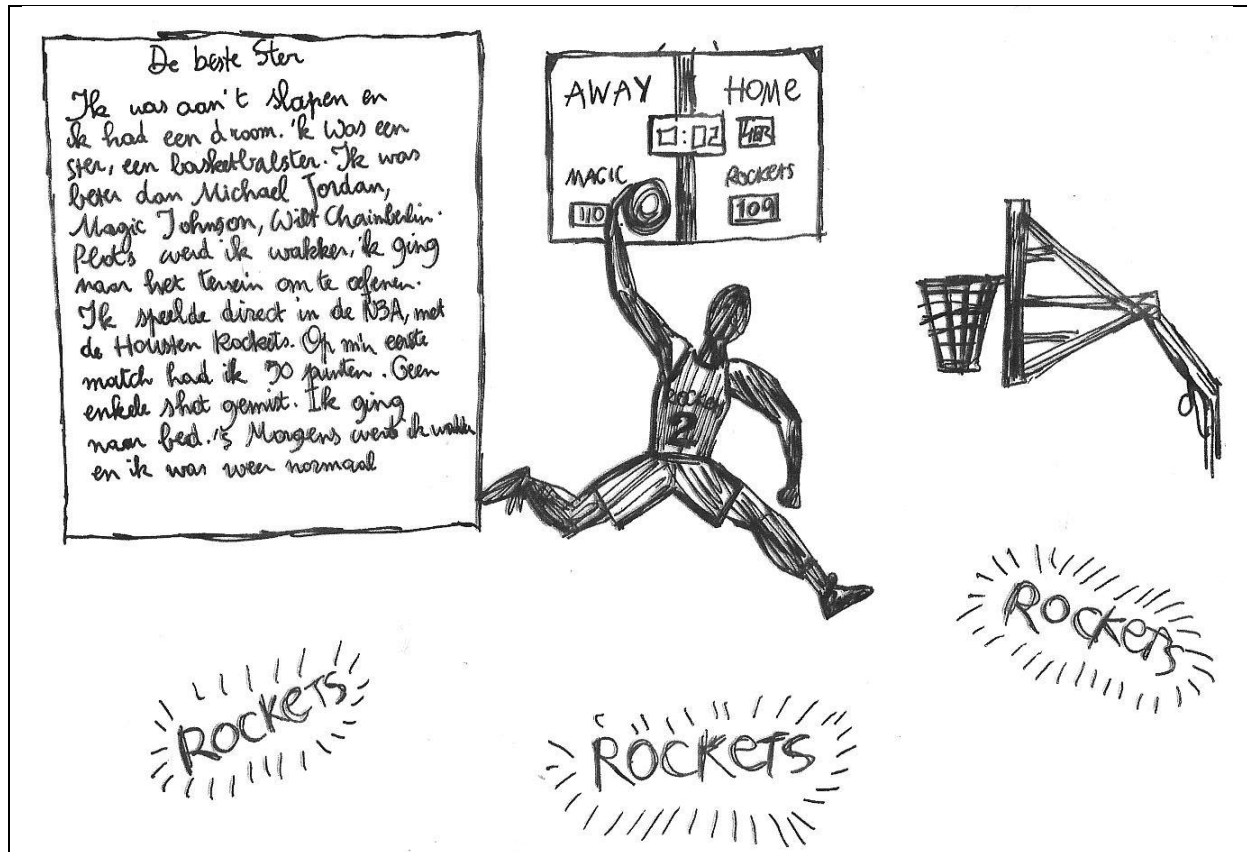 De beste Ster
Ik was aan't slapen en
ik had een droom. 'k Was een
ster, een basketbalster. Ik was
beter dan Michael Jordan,
Magic Johnson, Wilt Chainberlin.
Plots werd ik wakker, ik ging
naar het terrein om te oefenen.
Ik speelde direct in de NBA, met
de Housten Rockets. Op m'n eerste
match had ik 30 punten. Geen
enkele shot gemist. Ik ging
naar bed. 's Morgens werd ik wakker
en ik was weer normaal
AWAY HOME
0:02
MAGIC ROCKETS
110 109
ROCKETS
2
ROCKETS
ROCKETS
ROCKETS